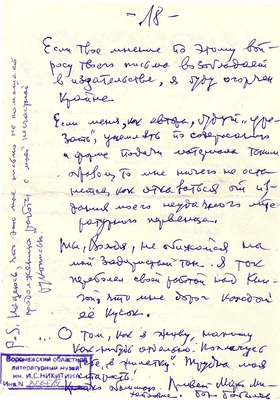 - 18 -
Если твое мнение по этому воп-
росу твоего письма возобладает
в издательстве, я буду огорчен
крайне.
Если меня, как автора, будут "уре-
зать", ущемлять по содержанию
и форме подачи материала таким
образом, то мне ничего не оста-
нется, как отказаться от из-
дания моего неудачного лите-
ратурного первенца.
Ты, Володя, не обижайся на
мой задиристый тон. Я так
переболел своей работой над кни-
гой, что мне дорог каждый
её кусок.
... О том, как я живу, напишу
как-нибудь отдельно. Поплачусь
тебе в "жилетку". Трудна моя
старость.
Привет Марии Ми-
P.S. Надеюсь, что это мое письмо не помешает
продолжению работы с моей несчастной
рукописью
Воронежский областной
литературный музей
им. И.С.НИКИТИНА
Инв.N